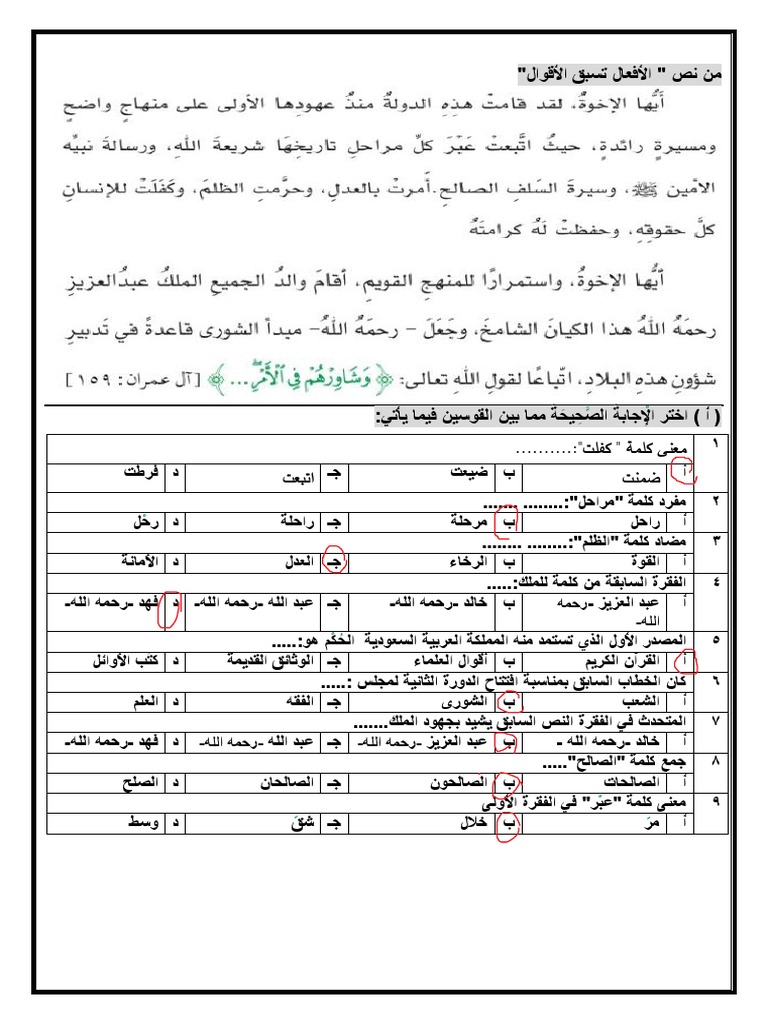 من نص " الأفعال تسبق الأقوال"
أَيُّها الإخوةُ، لقد قامتْ هذِهِ الدولةُ منذُ عهودِها الأولى على منهاجٍ واضحٍ
ومسيرةٍ رائدةٍ، حيثُ اتَّبعتْ عَبْرَ كلِّ مراحلِ تاريخِهَا شريعةَ اللهِ، ورسالةَ نبيِّه
الأمين ﷺ، وسيرةَ السَلفِ الصالحِ.أَمرتْ بالعدلِ، وحرَّمتِ الظلمَ، وكَفَلَتْ للإنسانِ
كلَّ حقوقِهِ، وحفظتْ لَهُ كرامتَهُ
أيُّها الإخوةُ، واستمرارًا للمنهجِ القويمِ، أقامَ والدُ الجميعِ الملكُ عبدُالعزيزِ
رحمَهُ اللهُ هذا الكيانَ الشامخَ، وجَعَلَ – رحمَهُ اللهُ– مبدأَ الشورى قاعدةً في تَدبيرِ
شؤونِ هذِهِ البلادِ، اتِّباعًا لقولِ اللهِ تعالى: ﴿ وَشَاوِرْهُمْ فِي ٱلْأَمْرِ ... ﴾ [آل عمران: ١٥٩]
( أ ) اختر الإجابة الصّحِيحَة مما بين القوسين فيما يأتي:
١ معنى كلمة " كفلت":..........
أ ضمنت ب ضيعت جـ اتبعت د فرطت
٢ مفرد كلمة "مراحل":........ ......
أ راحل ب مرحلة جـ راحلة د رحّل
٣ مضاد كلمة "الظلم":........ ........
أ القوة ب الرخاء جـ العدل د الأمانة
٤ الفقرة السابقة من كلمة للملك:.....
أ عبد العزيز -رحمه الله- ب خالد -رحمه الله- جـ عبد الله -رحمه الله- د فهد -رحمه الله-
٥ المصدر الأول الذي تستمد منه المملكة العربية السعودية الحُكْم هو:.....
أ القرآن الكريم ب أقوال العلماء جـ الوثائق القديمة د كتب الأوائل
٦ كان الخطاب السابق بمناسبة افتتاح الدورة الثانية لمجلس :.....
أ الشعب ب الشورى جـ الفقه د العلم
٧ المتحدث في الفقرة النص السابق يشيد بجهود الملك.......
أ خالد -رحمه الله - ب عبد العزيز -رحمه الله- جـ عبد الله -رحمه الله- د فهد -رحمه الله-
٨ جمع كلمة "الصالح".....
أ الصالحات ب الصالحون جـ الصالحان د الصلح
٩ معنى كلمة "عبْر" في الفقرة الأولى
أ مرّ ب خلال جـ شقّ د وسط